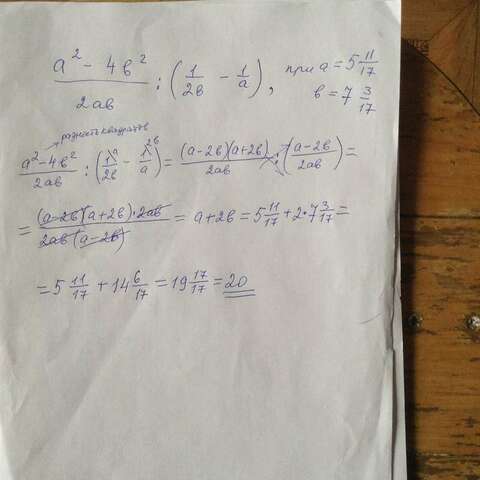 a² - 4b² / 2ab : (1/2b - 1/a), при a = 5 11/17
b = 7 3/17
разность квадратов
a² - 4b² / 2ab : (1\a / 2b - 1\2b / a) = (a - 2b)(a + 2b) / 2ab : (a - 2b / 2ab) =
= (a - 2b)(a + 2b) · 2ab / 2ab (a - 2b) = a + 2b = 5 11/17 + 2 · 7 3/17 =
= 5 11/17 + 14 6/17 = 19 17/17 = 20